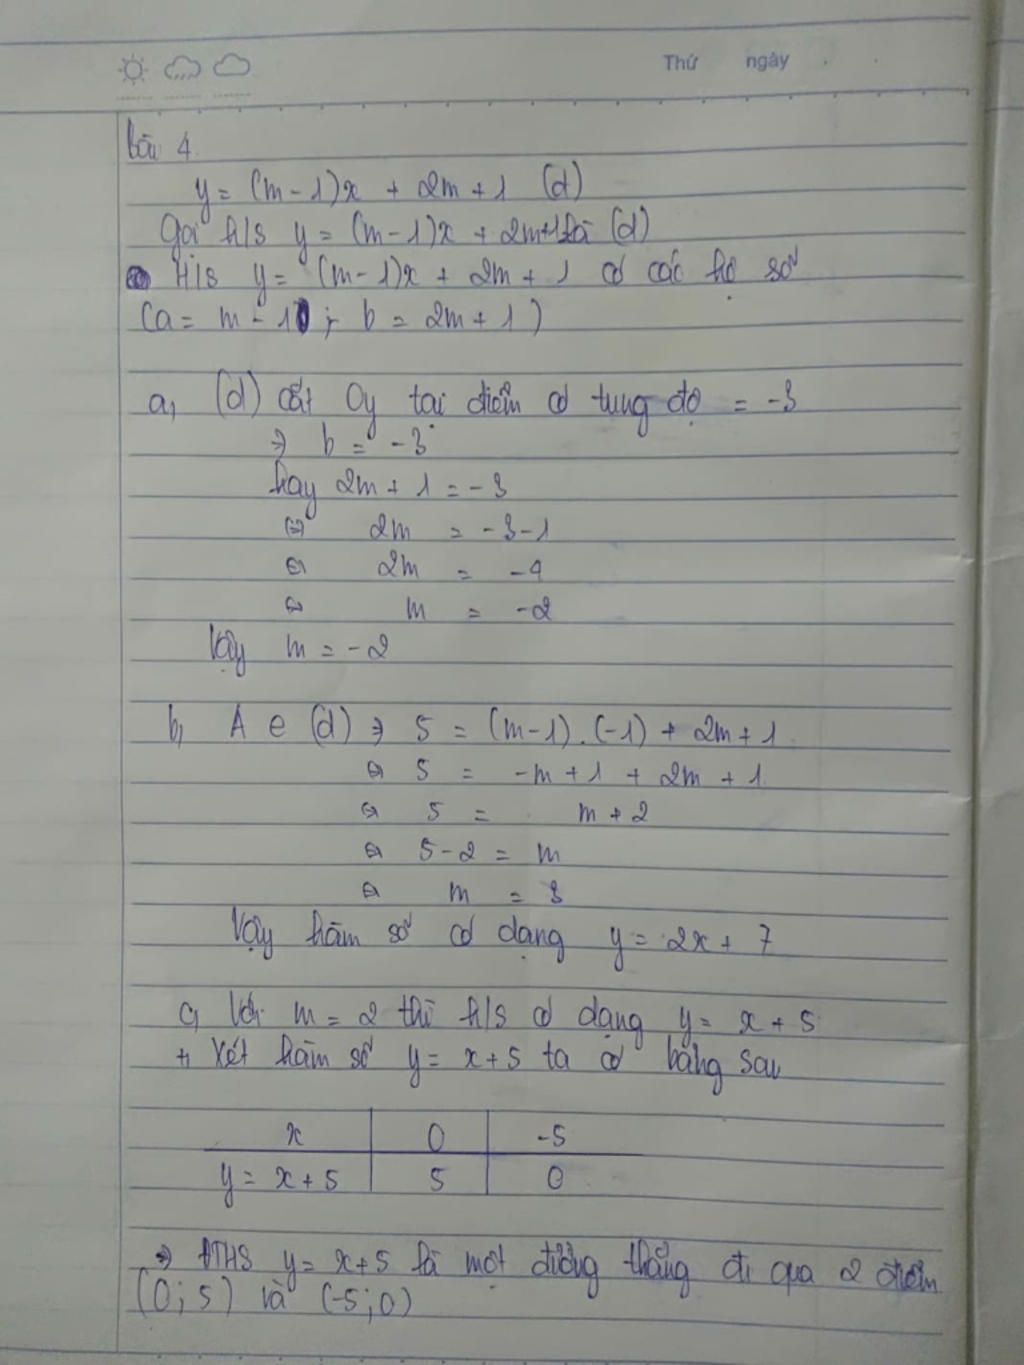 Thứ ngày
bài 4.
y = (m-1)x + 2m+1 (d)
Gọi h/s y = (m-1)x + 2m+1 là (d)
H/s y = (m-1)x + 2m + 1 có các hệ số
(a = m-1 ; b = 2m+1)
a, (d) cắt Oy tại điểm có tung độ = -3
⇒ b = -3
hay 2m + 1 = -3
⇔ 2m = -3-1
⇔ 2m = -4
⇔ m = -2
Vậy m = -2
b, A ∈ (d) ⇒ 5 = (m-1).(-1) + 2m+1
⇔ 5 = -m+1 + 2m + 1
⇔ 5 = m+2
⇔ 5-2 = m
⇔ m = 3
Vậy hàm số có dạng y = 2x + 7
c, Với m = 2 thì h/s có dạng y = x + 5
+, Xét hàm số y = x+5 ta có bảng sau
x 0 -5
y = x+5 5 0
⇒ ĐTHS y = x+5 là một đường thẳng đi qua 2 điểm
(0;5) và (-5;0)